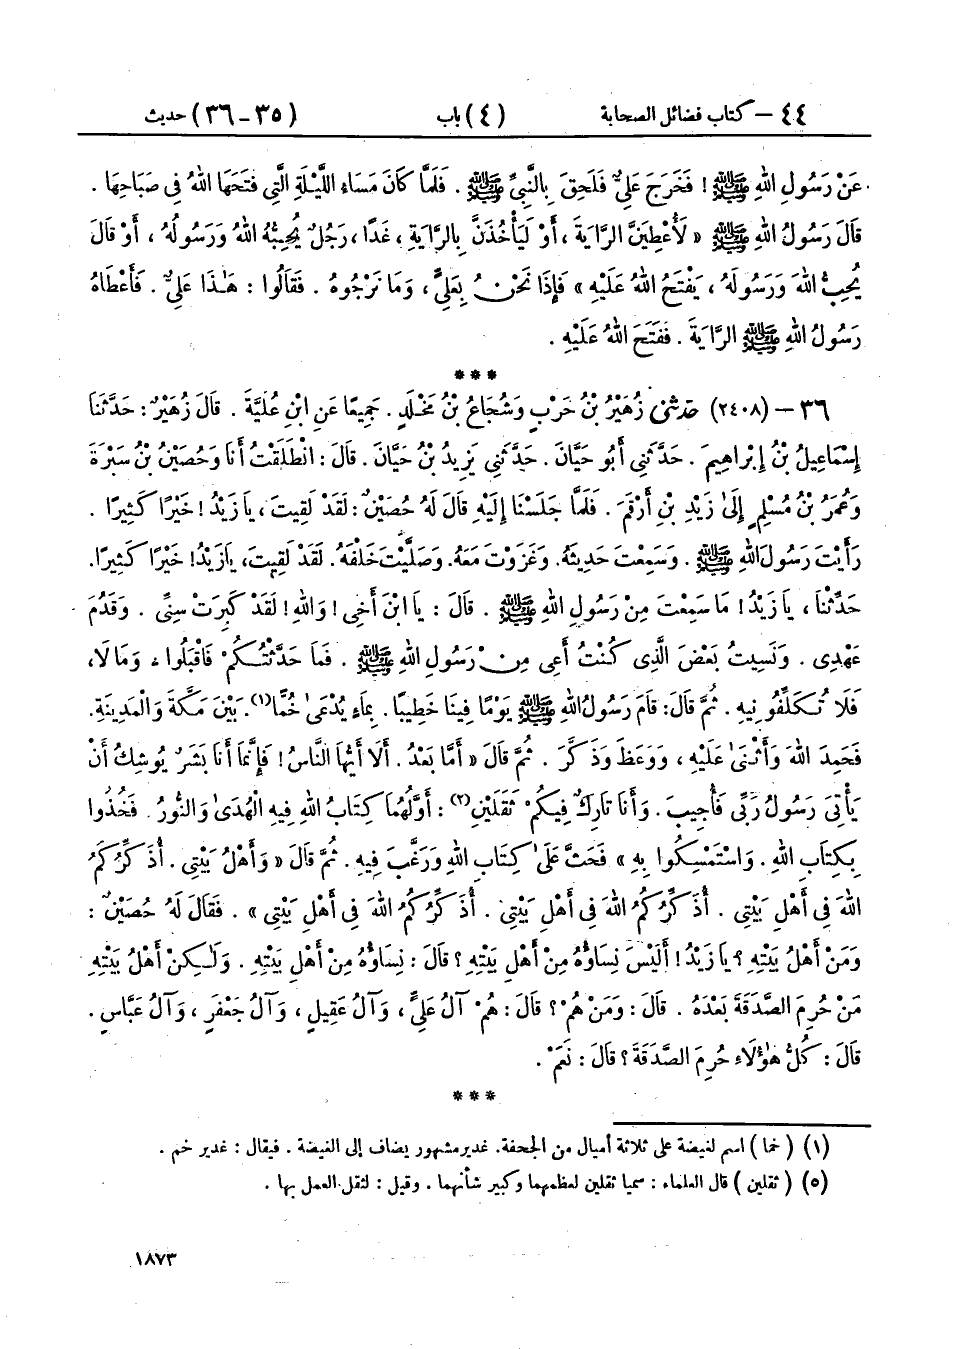 ٤٤ – كتاب فضائل الصحابة (٤) باب (٣٥ – ٣٦) حديث
عَنْ رَسُولِ اللهِ ﷺ ! فَخَرَجَ عَلِيٌّ فَلَحِقَ بِالنَّبِيِّ ﷺ . فَلَمَّا كَانَ مَسَاءُ اللَّيْلَةِ الَّتِي فَتَحَهَا اللهُ فِي صَبَاحِهَا .
قَالَ رَسُولُ اللهِ ﷺ « لَأُعْطِيَنَّ الرَّايَةَ ، أَوْ لَيَأْخُذَنَّ بِالرَّايَةِ ، غَدًا ، رَجُلٌ يُحِبُّهُ اللهُ وَرَسُولُهُ ، أَوْ قَالَ
يُحِبُّ اللهَ وَرَسُولَهُ ، يَفْتَحُ اللهُ عَلَيْهِ » فَإِذَا نَحْنُ بِعَلِيٍّ ، وَمَا نَرْجُوهُ . فَقَالُوا : هَٰذَا عَلِيٌّ . فَأَعْطَاهُ
رَسُولُ اللهِ ﷺ الرَّايَةَ . فَفَتَحَ اللهُ عَلَيْهِ .
***
٣٦ – (٢٤٠٨) حدثني زُهَيْرُ بْنُ حَرْبٍ وَشُجَاعُ بْنُ مَخْلَدٍ . جَمِيعًا عَنِ ابْنِ عُلَيَّةَ . قَالَ زُهَيْرٌ : حَدَّثَنَا
إِسْمَاعِيلُ بْنُ إِبْرَاهِيمَ . حَدَّثَنِي أَبُو حَيَّانَ . حَدَّثَنِي يَزِيدُ بْنُ حَيَّانَ . قَالَ : انْطَلَقْتُ أَنَا وَحُصَيْنُ بْنُ سَبْرَةَ
وَعُمَرُ بْنُ مُسْلِمٍ إِلَىٰ زَيْدِ بْنِ أَرْقَمَ . فَلَمَّا جَلَسْنَا إِلَيْهِ قَالَ لَهُ حُصَيْنٌ : لَقَدْ لَقِيتَ ، يَا زَيْدُ ! خَيْرًا كَثِيرًا .
رَأَيْتَ رَسُولَ اللهِ ﷺ . وَسَمِعْتَ حَدِيثَهُ . وَغَزَوْتَ مَعَهُ . وَصَلَّيْتَ خَلْفَهُ . لَقَدْ لَقِيتَ ، يَا زَيْدُ ! خَيْرًا كَثِيرًا .
حَدِّثْنَا ، يَا زَيْدُ ! مَا سَمِعْتَ مِنْ رَسُولِ اللهِ ﷺ . قَالَ : يَا ابْنَ أَخِي ! وَاللهِ ! لَقَدْ كَبِرَتْ سِنِّي . وَقَدُمَ
عَهْدِي . وَنَسِيتُ بَعْضَ الَّذِي كُنْتُ أَعِي مِنْ رَسُولِ اللهِ ﷺ . فَمَا حَدَّثْتُكُمْ فَاقْبَلُوا ، وَمَا لَا ،
فَلَا تُكَلِّفُونِيهِ . ثُمَّ قَالَ : قَامَ رَسُولُ اللهِ ﷺ يَوْمًا فِينَا خَطِيبًا . بِمَاءٍ يُدْعَىٰ خُمًّا(١) . بَيْنَ مَكَّةَ وَالْمَدِينَةِ .
فَحَمِدَ اللهَ وَأَثْنَىٰ عَلَيْهِ ، وَوَعَظَ وَذَكَّرَ . ثُمَّ قَالَ « أَمَّا بَعْدُ . أَلَا أَيُّهَا النَّاسُ ! فَإِنَّمَا أَنَا بَشَرٌ يُوشِكُ أَنْ
يَأْتِيَ رَسُولُ رَبِّي فَأُجِيبَ . وَأَنَا تَارِكٌ فِيكُمْ ثَقَلَيْنِ(٢) : أَوَّلُهُمَا كِتَابُ اللهِ فِيهِ الْهُدَىٰ وَالنُّورُ . فَخُذُوا
بِكِتَابِ اللهِ . وَاسْتَمْسِكُوا بِهِ » فَحَثَّ عَلَىٰ كِتَابِ اللهِ وَرَغَّبَ فِيهِ . ثُمَّ قَالَ « وَأَهْلُ بَيْتِي . أُذَكِّرُكُمُ
اللهَ فِي أَهْلِ بَيْتِي . أُذَكِّرُكُمُ اللهَ فِي أَهْلِ بَيْتِي . أُذَكِّرُكُمُ اللهَ فِي أَهْلِ بَيْتِي » . فَقَالَ لَهُ حُصَيْنٌ :
وَمَنْ أَهْلُ بَيْتِهِ ؟ يَا زَيْدُ ! أَلَيْسَ نِسَاؤُهُ مِنْ أَهْلِ بَيْتِهِ ؟ قَالَ : نِسَاؤُهُ مِنْ أَهْلِ بَيْتِهِ . وَلَٰكِنْ أَهْلُ بَيْتِهِ
مَنْ حُرِمَ الصَّدَقَةَ بَعْدَهُ . قَالَ : وَمَنْ هُمْ ؟ قَالَ : هُمْ آلُ عَلِيٍّ ، وَآلُ عَقِيلٍ ، وَآلُ جَعْفَرٍ ، وَآلُ عَبَّاسٍ .
قَالَ : كُلُّ هَٰؤُلَاءِ حُرِمَ الصَّدَقَةَ ؟ قَالَ : نَعَمْ .
***
(١) ( خما ) اسم لغيضة على ثلاثة أميال من الجحفة . غدير مشهور يضاف إلى الغيضة . فيقال : غدير خم .
(٥) ( ثقلين ) قال العلماء : سميا ثقلين لعظمهما وكبير شأنهما . وقيل : لثقل العمل بها .
١٨٧٣